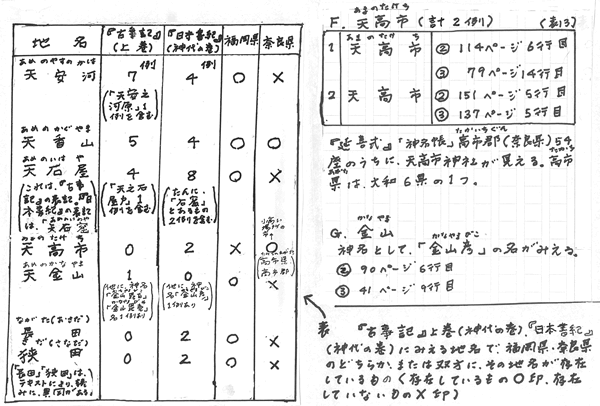 地名
『古事記』(上巻)
『日本書紀』(神代の巻)
福岡県
奈良県
あめのやすのかは
天安河
7例
4例
○
×
(「天安之河原」1例を含む)
あめのかぐやま
天香山
5
4
○
○
あめのいはや
天石屋
4
8
○
×
(これは、『古事記』の表記。『日本書紀』の表記は、「天石窟」)
(「天之石屋戸」1例を含む)
(たんに、「石窟」とあるもの2例を含む)
あまのたけち
天高市
0
2
×
○
(高市県
高市郡)
あめのかなやま
天金山
1
0
○
×
ながた(おさだ)
長田
0
2
○
×
さだ(さなだ)
狭田
0
2
○
×
(「長田」「狭田」は、テキストにより、読みに、異同がある)
F. 天高市 (計2例)
あまのたけち
(表3)
1 天高市 ② 114ページ6行目
あまのたけち
③ 79ページ14行目
2 天高市 ② 151ページ5行目
③ 137ページ5行目
『延喜式』「神名帳」高市郡(奈良県)54
たかいちぐん
座のうちに、天高市神社が見える。高市
県は、大和6県の1つ。
かなやま
G. 金山
かなやまびこ
神名として、「金山彦」の名がみえる。
② 90ページ6行目
③ 41ページ9行目
表 『古事記』上巻(神代の巻)、『日本書紀』
(神代の巻)にみえる地名で、福岡県・奈良県
のどちらか、または双方に、その地名が存在
しているもの(存在しているもの○印、存在
していないもの×印)